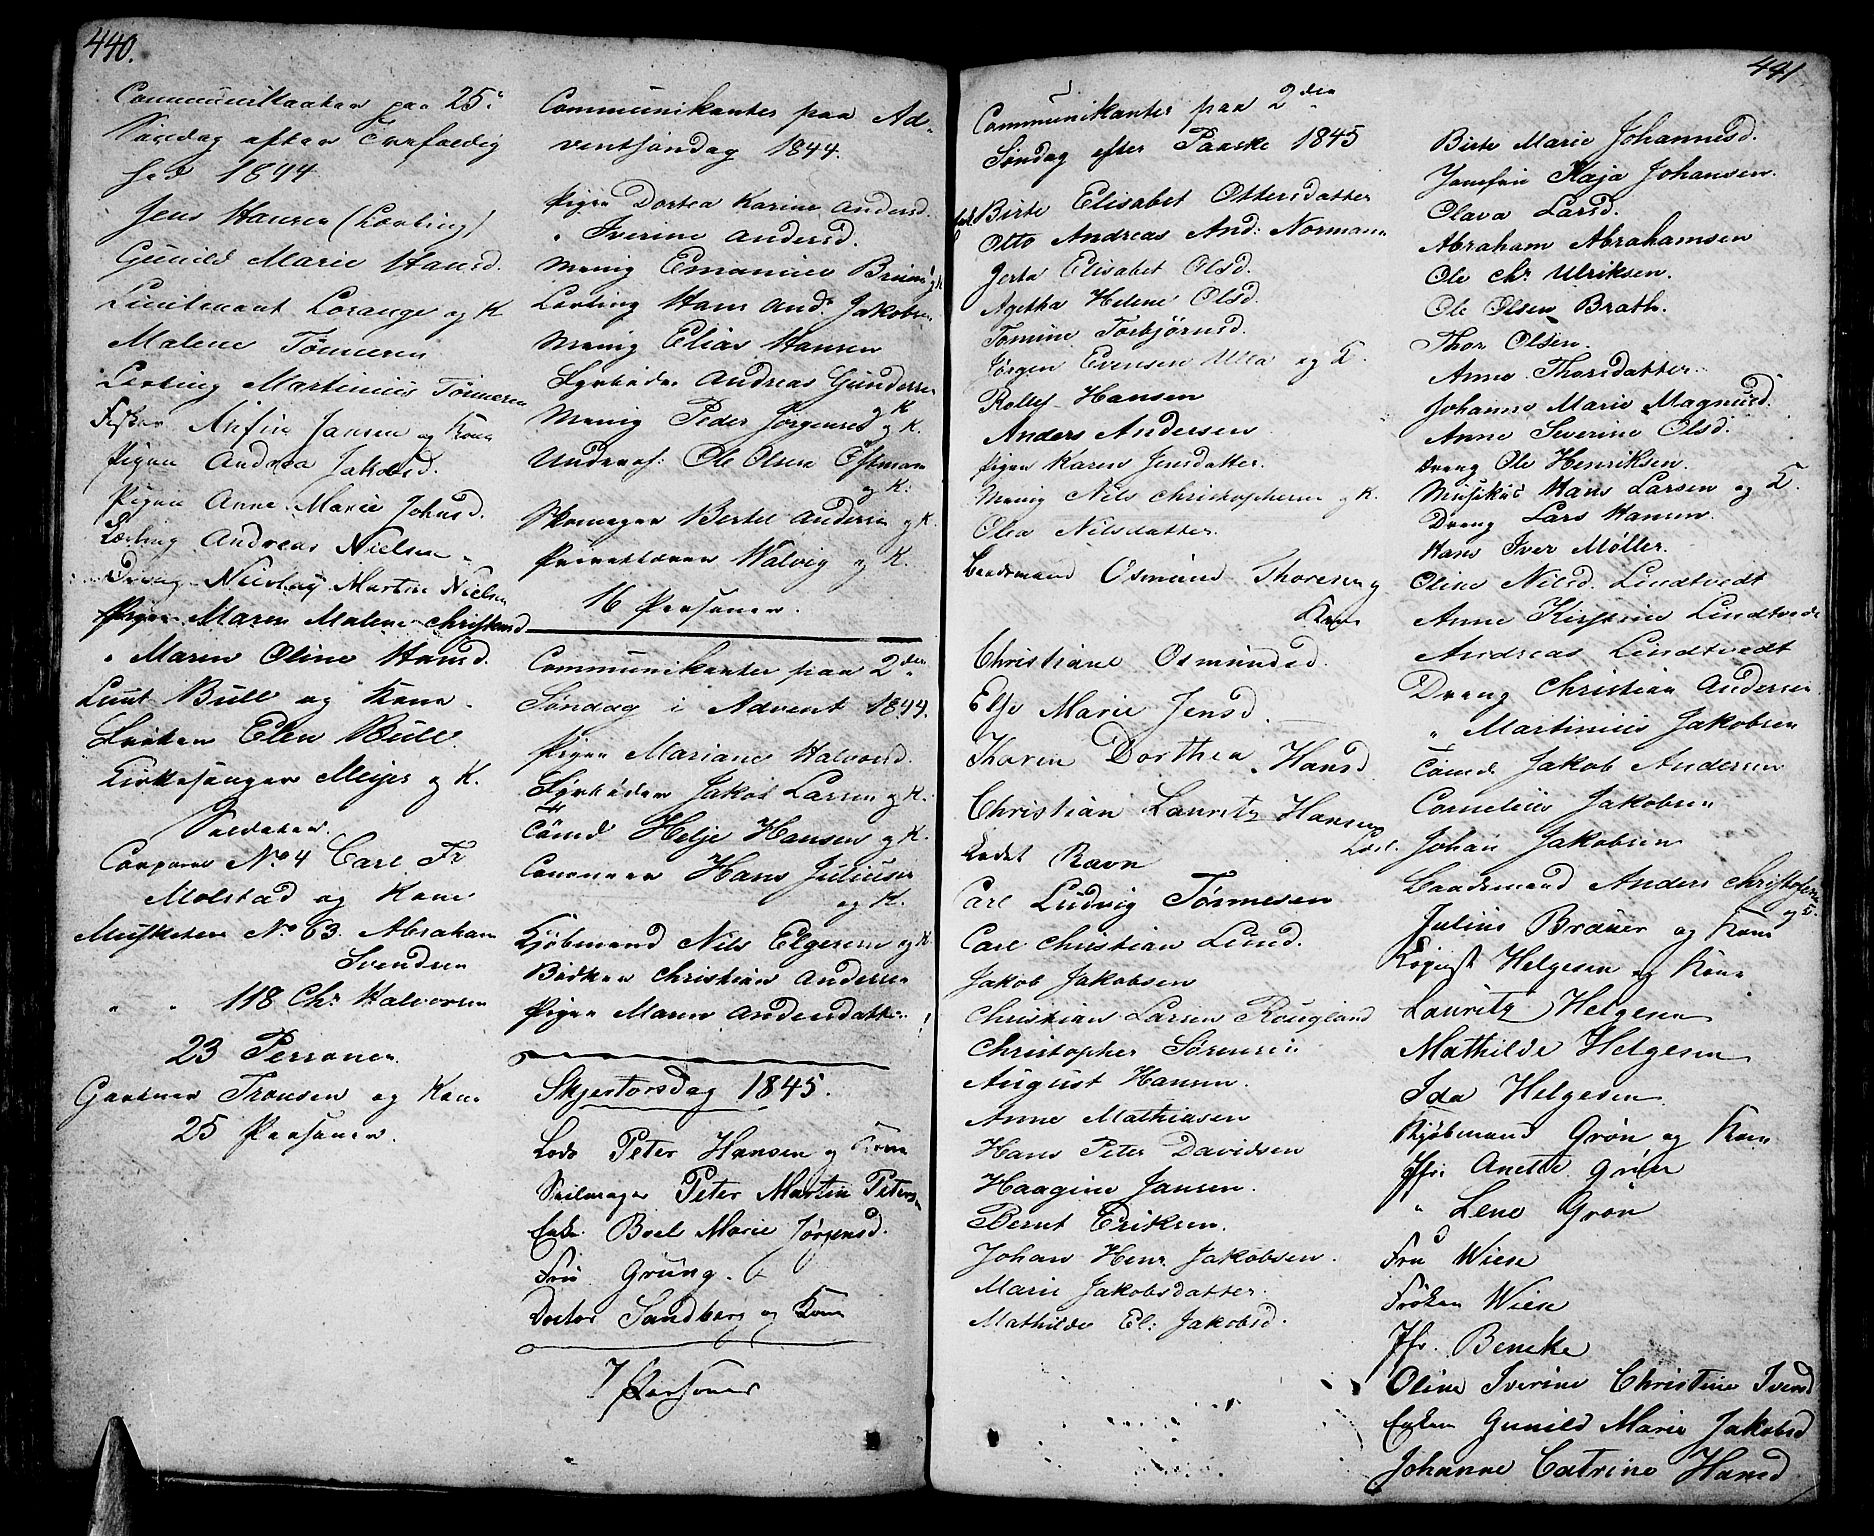 440.
Communikanter paa 25.
Søndag efter Trefoldig
hed 1844
Jens Hansen (Lærling)
Gunild Marie Hansd.
Lieutenant Lorange og K
Malene Tønnesen
Lærling Martinius Tønnesen
Fisker Anfin Jansen og Kone
Pigen Andrea Jakobsd.
Pigen Anne Marie Johnsd.
Lærling Andreas Nielsen
Dreng Nicolay Martin Nielsen
Pigen Maren Malene Christensd
" Maren Oline Hansd.
Lieut Bull og Kone.
Frøken Elen Bull.
Kirkesanger Meijer og K.
Soldater.
Corporal No 4 Carl Fr
Molstad og Kone
Musketeer No 63 Abraham
Svendsen
" " 118 Chr Halvorsen
23 Personer.
Gartner Tronsen og Kone
25 Personer.
Communikanter paa Ad-
ventsøndag 1844.
Pigen Dortea Karine Andersd.
" Iverine Andersd.
Menig Emanuel og K
Lærling Hans And. Jakobsen
Menig Elias Hansen
Styrbøder Andreas Gundersen
og K
Menig Peder Jørgensen og K.
Underof: Ole Olsen Østman
og K.
Skomager Bertel Andersen og K.
Privatlærer Walvig og K.
16 Personer.
Communikanter paa 2den
Søndag i Advent 1844.
Pigen Mariane Halvorsd.
Jakob Larsen og K.
Tømd Helje Hansen og K.
Canoneer Hans Juliusen
og K.
Kjøbmand Nils Elgesen og K.
Bødker Christian Andersen
Pigen Maren Andersdatter
Skjertorsdag 1845.
Lods Peter Hansen og Kone
Seilmager Peter Martin Petersen
Enke Boel Marie Jørgensd.
Fru Grüng.
Doctor Sandberg og Kone
7 Personer
441
Communikanter paa 2den
Søndag efter Paaske 1845
Birte Elisabet Ottersdatter
Otto Andreas And: Normann
Jerta Elisabet Olsd.
Agetha Helene Olsd.
Tomine Torbjørnsd.
Jørgen Evensen Ulla og K.
Rollef Hansen
Anders Andersen
Pigen Karen Jensdatter.
Menig Nils Christophersen og K.
Olea Nilsdatter.
Baadsmand Osmund Thoresen og
Kone
Christiane Osmundsd.
Elje Marie Jensd.
Karen Dorthea Hansd.
Christian Lauritz Hansen
Kadet Ravn
Carl Ludvig Tønnesen
Carl Christian Lund.
Jakob Jakobsen
Christian Larsen Rougland
Christopher Sørensen
August Hansen.
Anne Mathiasen
Hans Peter Davidsen
Haagine Jansen.
Bernt Eriksen.
Johan Henr Jakobsen.
Marie Jakobsdatter.
Mathilde El: Jakobsd.
Birte Marie Johannesd.
Jomfru Kaja Johansen.
Olava Larsd.
Abraham Abrahamsen
Ole Chr Ulriksen.
Ole Olsen Brath.
Thor Olsen.
Anne Thorsdatter.
Johanne Marie Magnusd.
Anne Severine Olsd.
Dreng Ole Henriksen.
Musikus Hans Larsen og K.
Dreng Lars Hansen.
Hans Iver Møller.
Oline Nilsd. Lindtvedt
Anne Kirstine Lindtvedt
Andreas Lindtvedt
Dreng Christian Andersen
" Martinius Jakobsen
Tømd Jakob Andersen
Cornelius Jakobsen
Johan Jakobsen
Baadsmand Anders Christofersen
og K.
Julius Brauer og Kone
Helgesen og Kone
Lauritz Helgesen
Mathilde Helgesen
Ida Helgesen
Kjøbmand Grøn og Kone
Jfr. Anette Grøn
" Lene Grøn
Fru Wiese
Frøken Wiese
Jfr. Beneke
Oline Iverine Christine Iversd
Enken Gunild Marie Jakobsd
Johanne Catrine Hansd